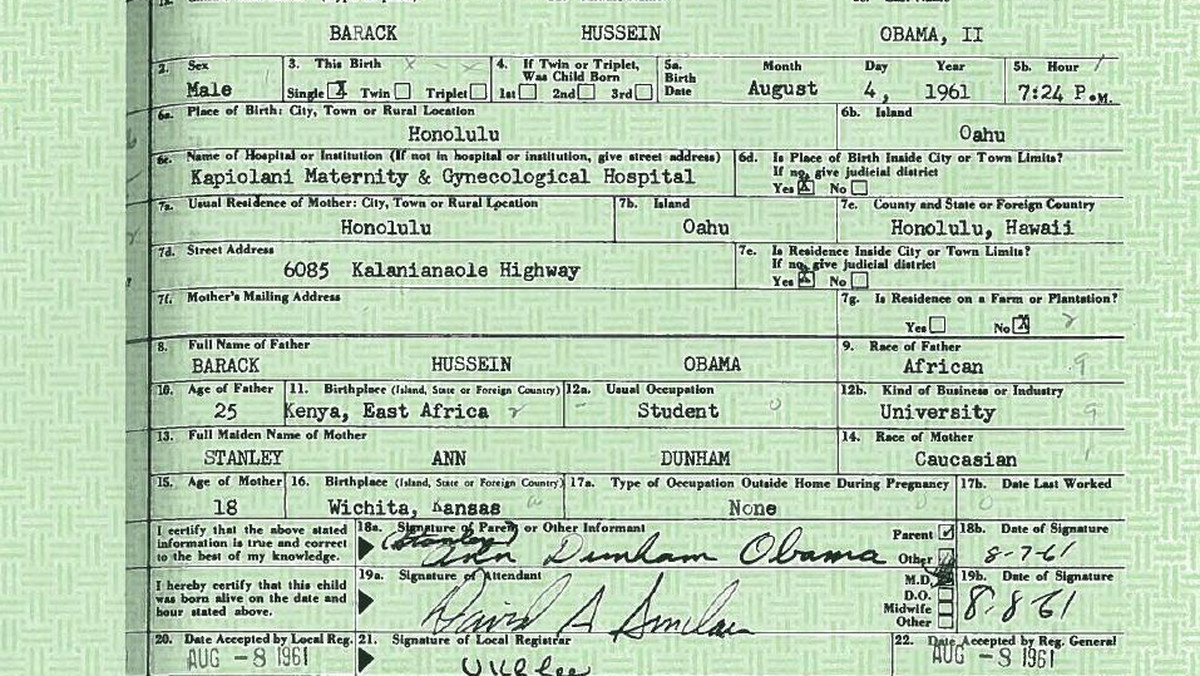 BARACK HUSSEIN OBAMA, II
2. Sex 3. This Birth 4. If Twin or Triplet, Was Child Born 5a. Birth Date Month Day Year 5b. Hour
Male Single X Twin Triplet 1st 2nd 3rd August 4, 1961 7:24 P.M.
6a. Place of Birth: City, Town or Rural Location 6b. Island
Honolulu Oahu
6c. Name of Hospital or Institution (If not in hospital or institution, give street address) 6d. Is Place of Birth Inside City or Town Limits?
If no, give judicial district
Kapiolani Maternity & Gynecological Hospital Yes X No
7a. Usual Residence of Mother: City, Town or Rural Location 7b. Island 7c. County and State or Foreign Country
Honolulu Oahu Honolulu, Hawaii
7d. Street Address 7e. Is Residence Inside City or Town Limits?
If no, give judicial district
6085 Kalanianaole Highway Yes X No
7f. Mother's Mailing Address 7g. Is Residence on a Farm or Plantation?
Yes No X
8. Full Name of Father 9. Race of Father
BARACK HUSSEIN OBAMA African 9
10. Age of Father 11. Birthplace (Island, State or Foreign Country) 12a. Usual Occupation 12b. Kind of Business or Industry
25 Kenya, East Africa Student University
13. Full Maiden Name of Mother 14. Race of Mother
STANLEY ANN DUNHAM Caucasian
15. Age of Mother 16. Birthplace (Island, State or Foreign Country) 17a. Type of Occupation Outside Home During Pregnancy 17b. Date Last Worked
18 Wichita, Kansas None
I certify that the above stated information is true and correct to the best of my knowledge. 18a. Signature of Parent or Other Informant Parent Other 18b. Date of Signature
(Stanley) Ann Dunham Obama 8-7-61
I hereby certify that this child was born alive on the date and hour stated above. 19a. Signature of Attendant M.D. D.O. Midwife Other 19b. Date of Signature
David A Sinclair 8-8-61
20. Date Accepted by Local Reg. 21. Signature of Local Registrar 22. Date Accepted by Reg. General
AUG -8 1961 AUG -8 1961